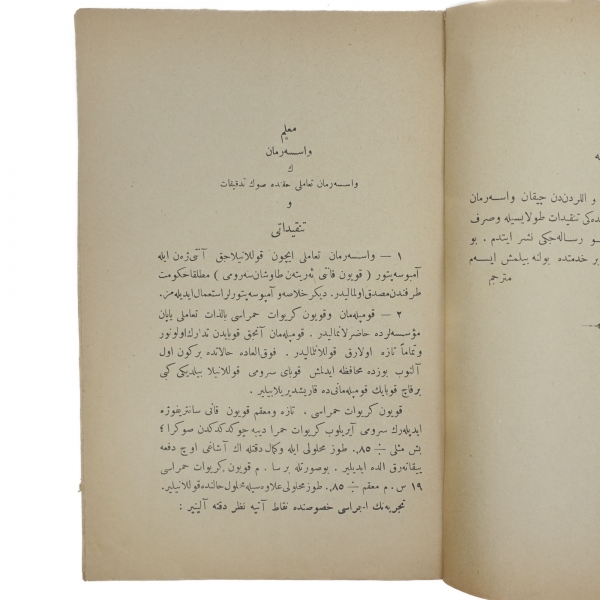 معلم
واسسه‌رمان
ك
واسسه‌رمان تعاملی حقنده صوك تدقیقات
و
تنقیداتی
١ — واسسه‌رمان تعاملی ایچون قوللانیلاجق آنتی‌ژه‌ن ایله
آمبوسه‌پتور ( قویون قانی ئه‌ریته‌ن طاوشان سه‌رومی ) مطلقا حكومت
طرفندن مصدق اولمالیدر. دیكر خلاصه و آمبوسه‌پتورلر استعمال ایدیله‌مز.
٢ — قومپله‌مان وقویون كریوات حمراسی بالذات تعاملی یاپان
مؤسسه‌لرده حاضرلانمالیدر. قومپله‌مان آنجق قوبایدن تدارك اولونور
وتماماً تازه اولارق قوللانلمالیدر . فوق‌العاده حالاتده بركون اول
آلنوب بوزده محافظه ایدلمش قوبای سرومی قوللانیلا بیلدیكی كبی
برقاچ قوبایك قومپله‌مانی ده قاریشدیریلابیلیر.
قویون كریوات حمراسی . تازه ومعقم قویون قانی سانتریفوژه
ایدیله‌رك سرومی آیریلوب كریوات حمرا دیبه چوكدكدن صوكرا ٤
بش مثلی ٪ ٨٥. طوز محلولی ایله وكمال دقتله اك آشاغی اوچ دفعه
ییقانه‌رق الده ایدیلیر . بوصورتله برسا . م قویون كریوات حمراسی
١٩ س . م معقم ٪ ٨٥. طوز محلولی علاوه‌سیله محلول حالنده قوللانیلیر.
تجربه‌نك اجراسی خصوصنده نقاط آتیه نظر دقته آلینیر :
و اللردن‌دن چیقان واسه‌رمان
ده‌كی تنقیدات طولاییسیله وصرف
و رساله‌جكی نشر ایتدم . بو
بر خدمتده بولنه بیلمش ایسه‌م
مترجم